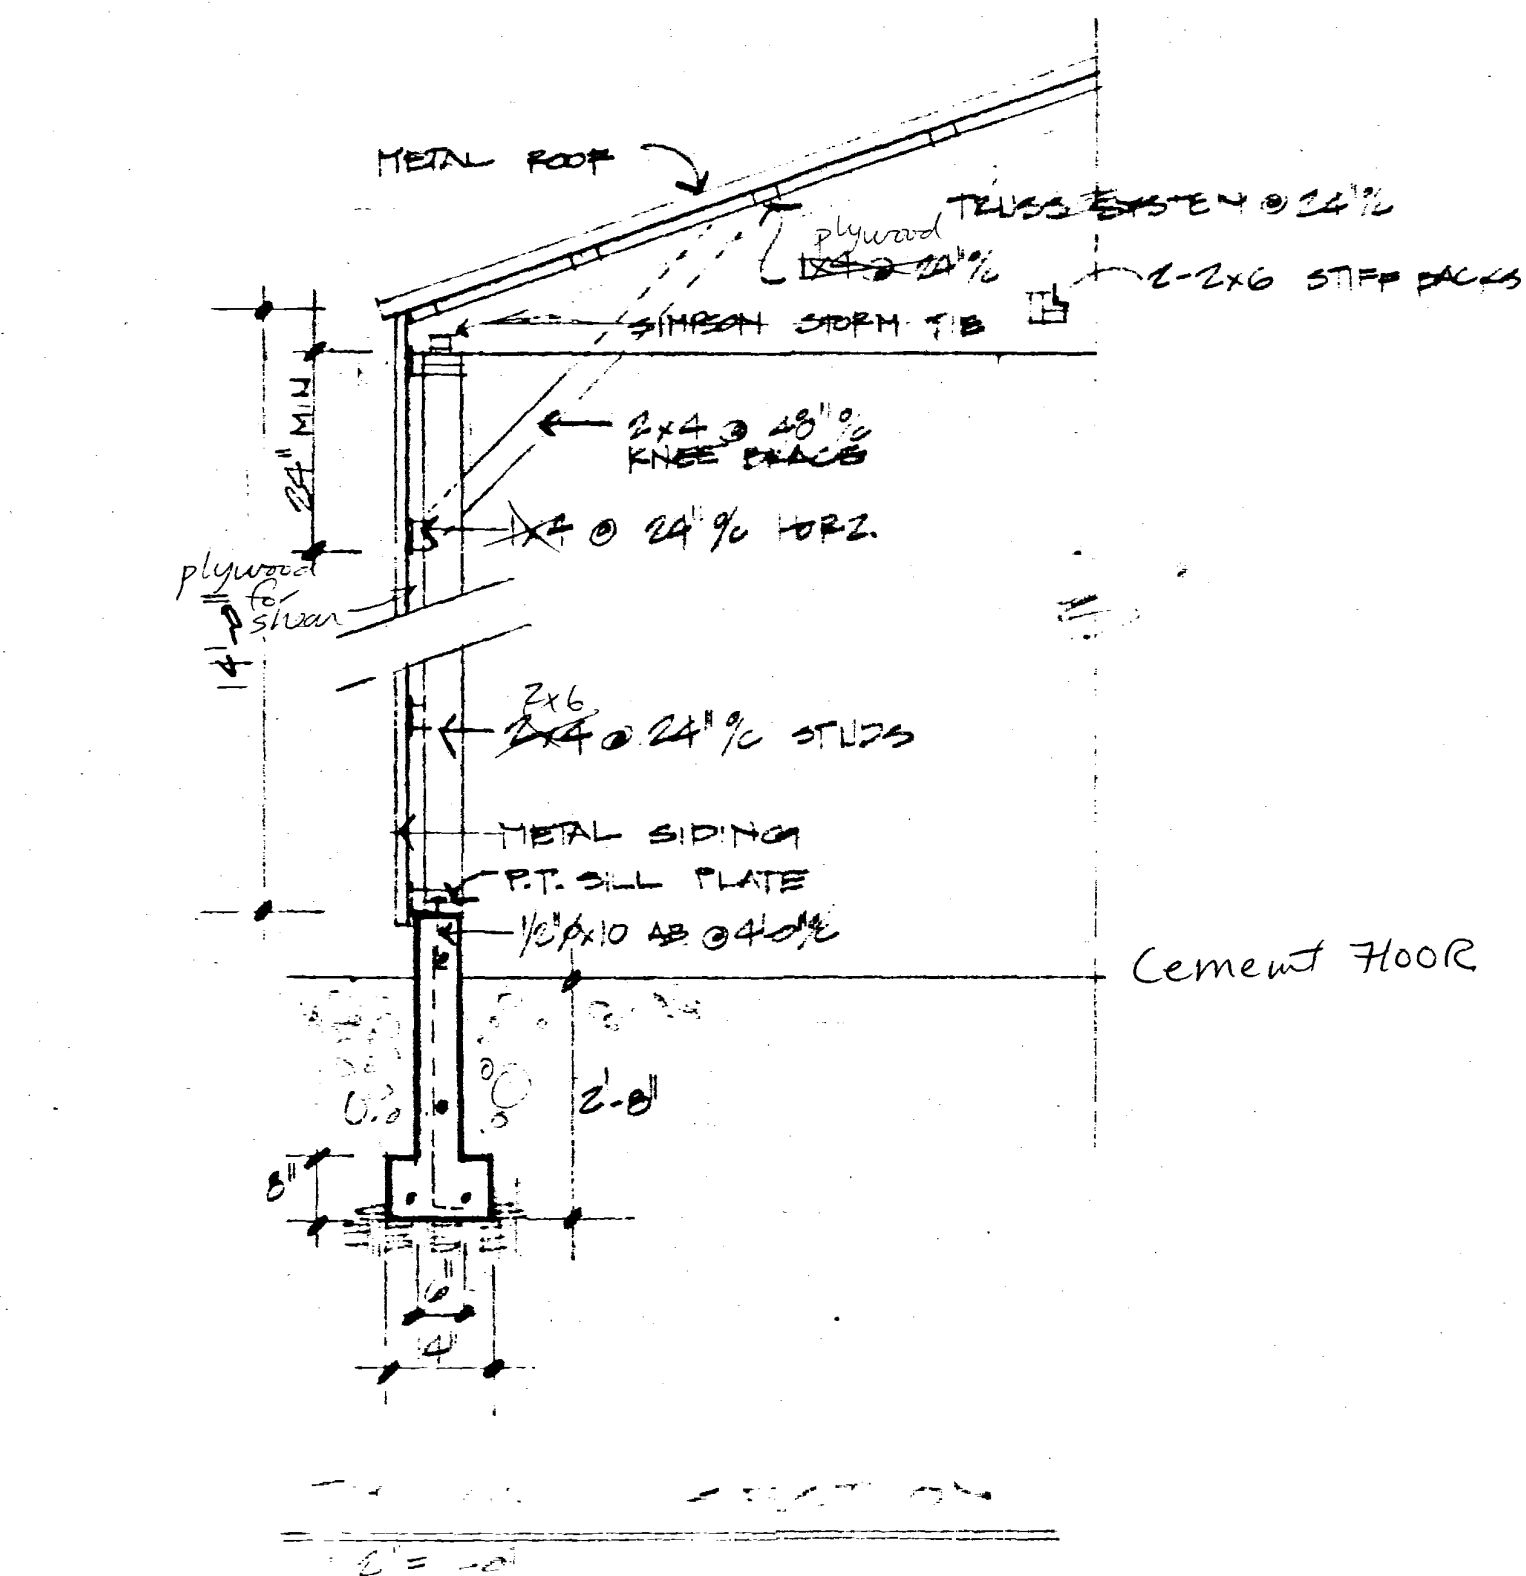 METAL ROOF
TRUSS SYSTEM @ 24" o/c
plywood
1x4 @ 24" o/c
2-2x6 STIFF BACKS
SIMPSON STORM TIE
24" MIN
2x4 @ 48" o/c
KNEE BRACE
1x4 @ 24" o/c HORZ.
plywood
for
shear
14'-0
2x6
2x4 @ 24" o/c STUDS
METAL SIDING
P.T. SILL PLATE
1/2"ø x 10 AB @ 4'-0" o/c
Cement FlOOR
2'-8"
8"
6"
14"